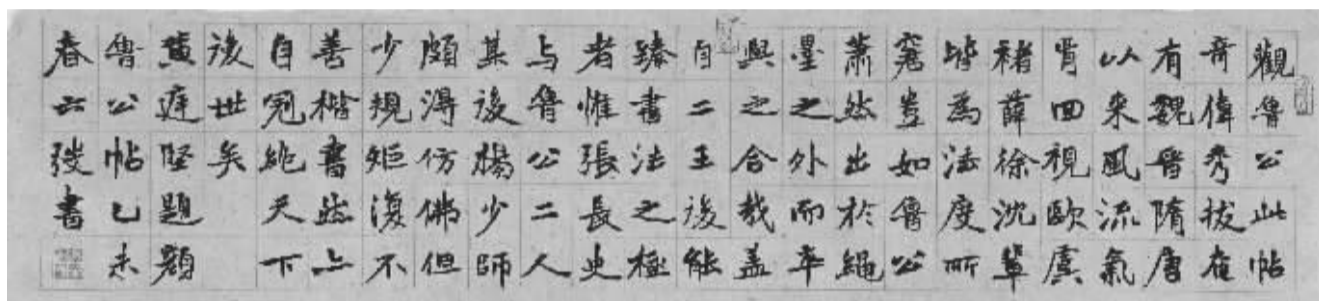 觀魯公此帖
奇偉秀拔奄
有魏晉隋唐
以来風流氣
骨回視歐虞
褚薛徐沈輩
皆為法度所
窘豈如魯公
蕭然出於繩
墨之外而卒
與之合哉盖
自二王後能
臻書法之極
者惟張長史
与魯公二人
其後楊少師
頗得仿佛但
少規矩復不
善楷書然亦
自冠絶天下
後世矣
黄庭堅題顔
魯公帖己未
春弢書